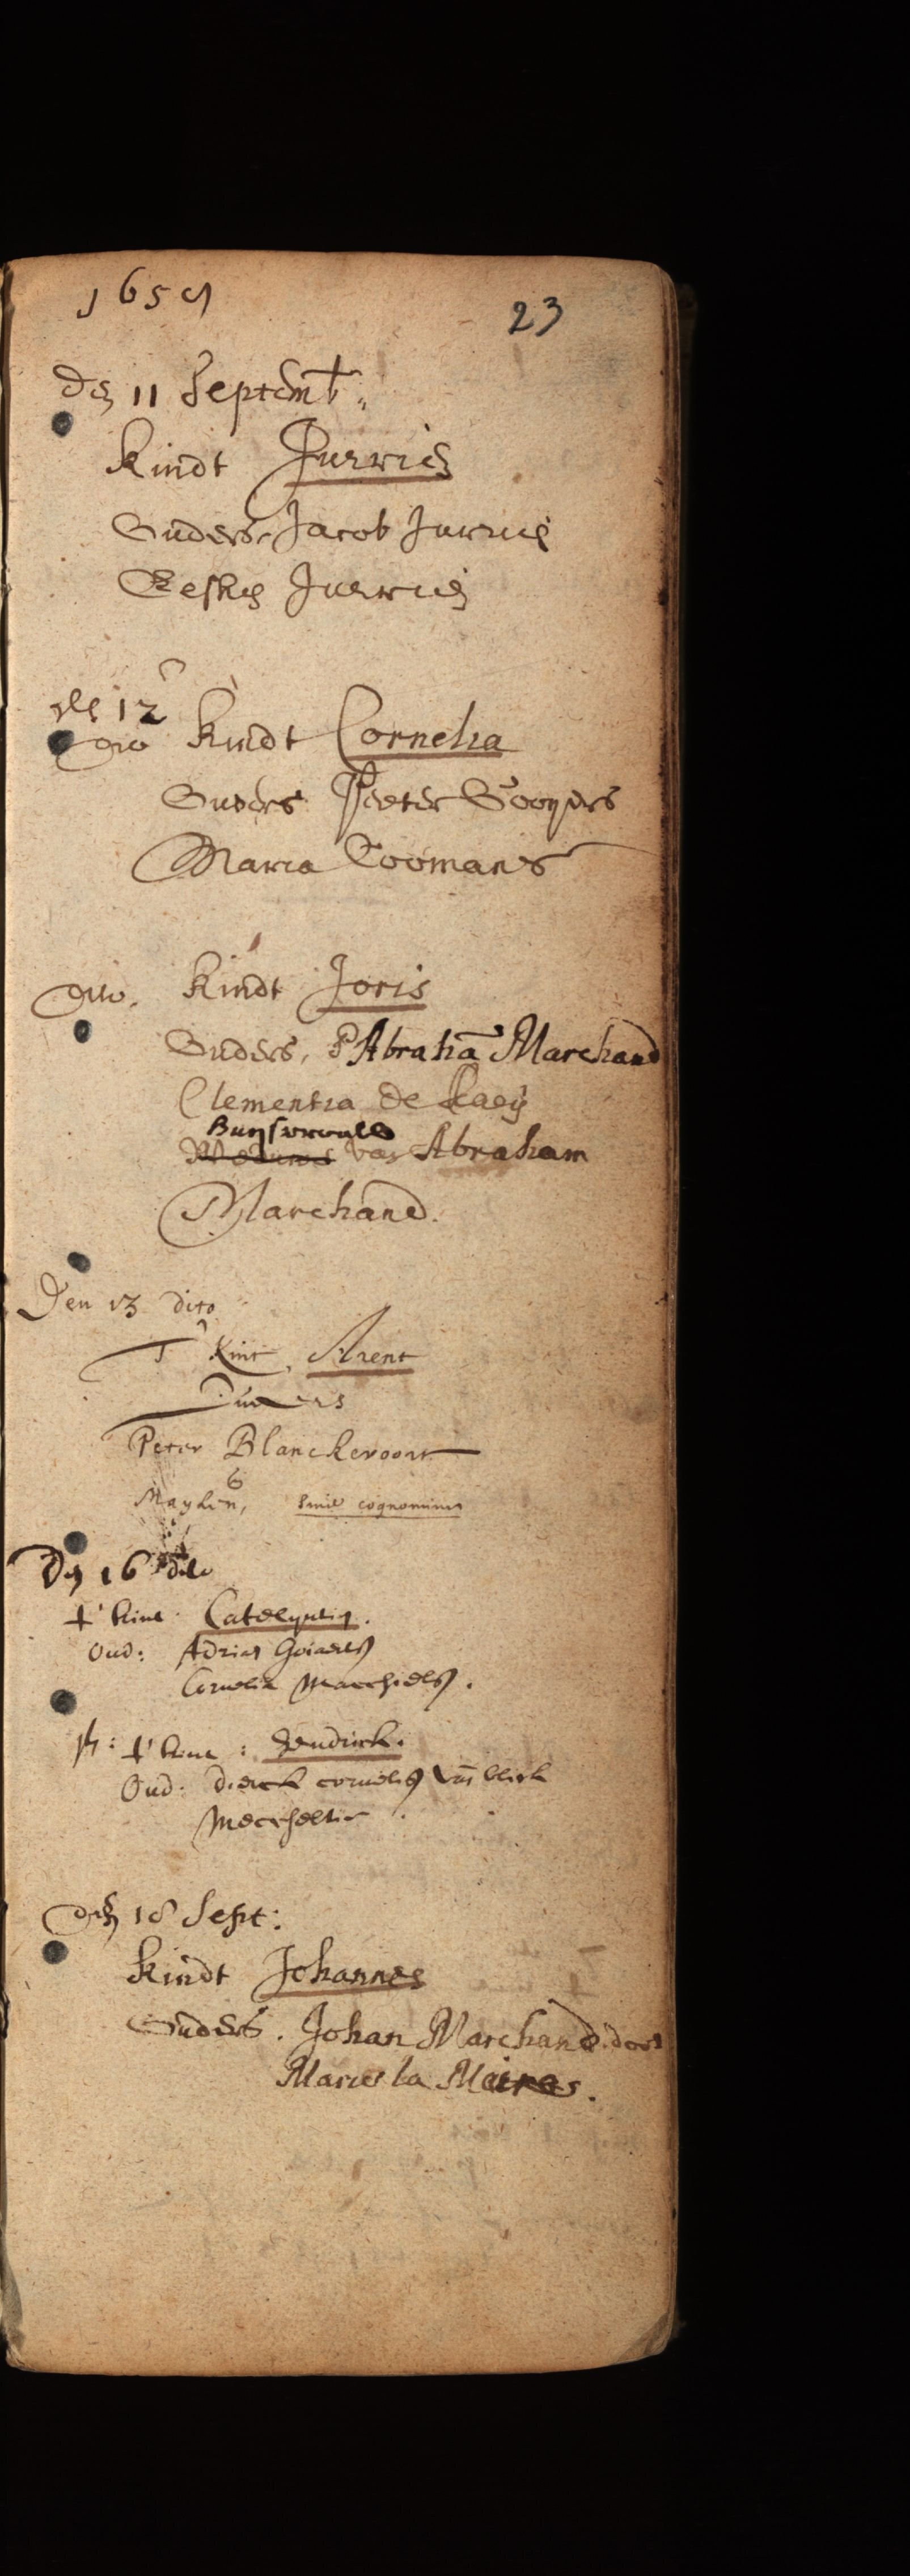 1659
23
den 11 Septemb.
kindt Jurrien
Ouders, Jacob Jurrien
Eefken Jurrien
den 12
dito kindt Cornelia
Ouders Pieter Gooyers
Maria Coomans
dito. kindt Joris
Ouders, Abrahā Marchand
Clementia de Kaey
Buyserouls
van Abraham
Marchand.
Den 13 dito
T Kint, Arent
Ouders
Peter Blanckevoort
Mayken, sine cognomine
Den 16 dito
t' kint Catelyntien.
Oud: Adriaen
Cornelia Macchiels.
t' kint : Hendrick.
Oud. Dierck cornelis
Mechteltie
den 18 Sept:
kindt Johannes
Ouders. Johan Marchand
Maries la Maires.